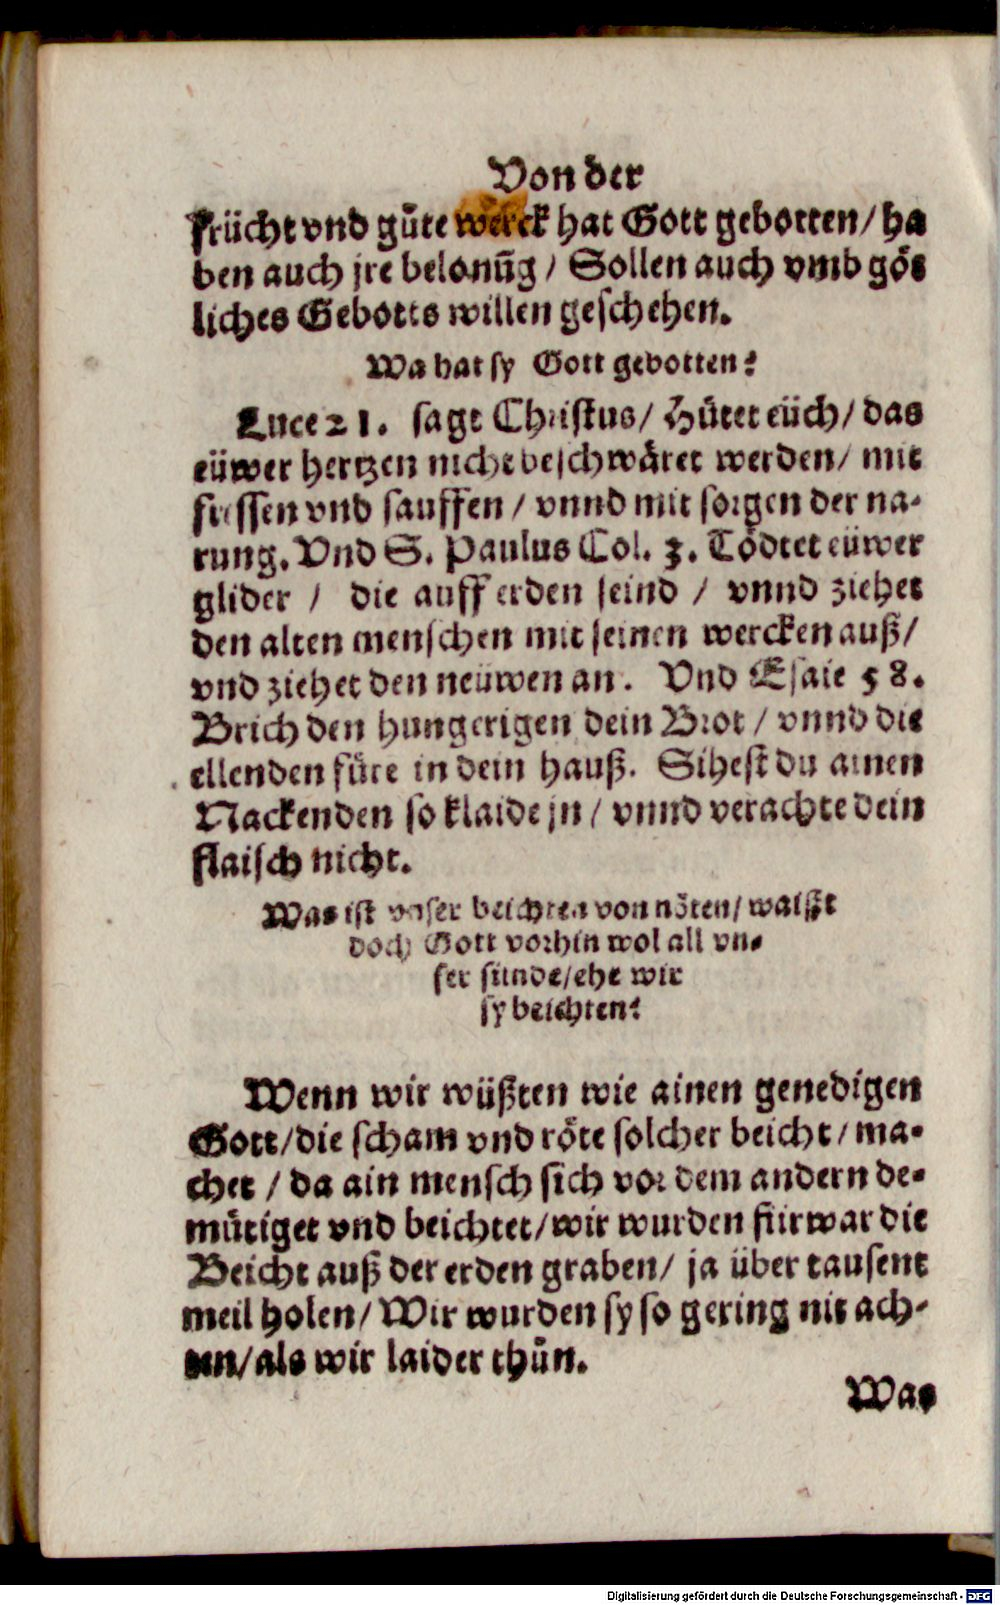 Von der
frücht vnd gůte werck hat Gott gebotten/ ha
ben auch jre belonūg / Sollen auch vmb göt
liches Gebotts willen geschehen.
Wa hat sy Gott gebotten?
Luce 21. sagt Christus/ Hütet eüch/ das
eüwer hertzen nicht beschwäret werden/ mit
fressen vnd sauffen / vnnd mit sorgen der na-
rung. Vnd S. Paulus Col. 3. Tödtet eüwer
glider / die auff erden seind / vnnd ziehet
den alten menschen mit seinen wercken auß/
vnd ziehet den neüwen an. Vnd Esaie 58.
Brich den hungerigen dein Brot / vnnd die
ellenden füre in dein hauß. Sihest du ainen
Nackenden so klaide jn / vnnd verachte dein
flaisch nicht.
Was ist vnser beichten von nöten/ waißt
doch Gott vorhin wol all vn-
ser sünde/ehe wir
sy beichten?
Wenn wir wüßten wie ainen genedigen
Gott/die scham vnd röte solcher beicht / ma-
chet / da ain mensch sich vor dem andern de-
mütiget vnd beichtet/wir wurden fürwar die
Beicht auß der erden graben/ ja über tausent
meil holen/ Wir wurden sy so gering nit ach-
ten/als wir laider thůn.
Was
Digitalisierung gefördert durch die Deutsche Forschungsgemeinschaft - DFG